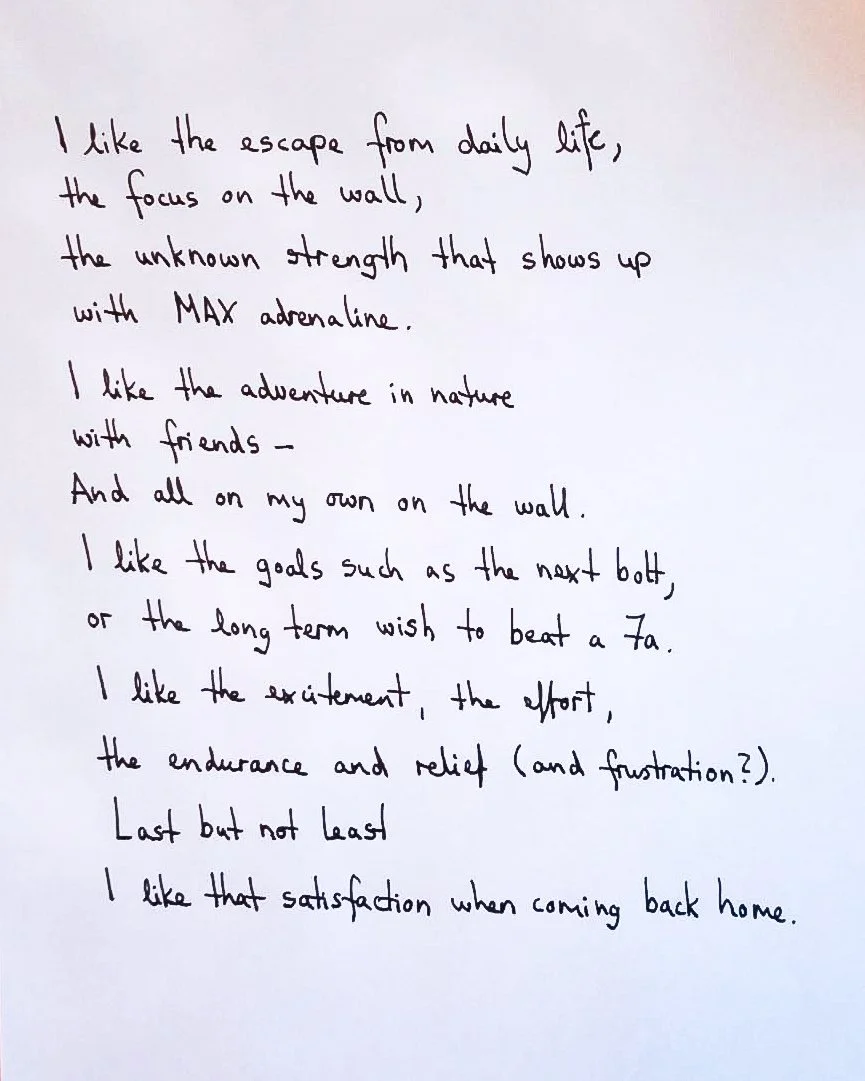 I like the escape from daily life,
the focus on the wall,
the unknown strength that shows up
with MAX adrenaline.
I like the adventure in nature
with friends –
And all on my own on the wall.
I like the goals such as the next bolt,
or the long term wish to beat a 7a.
I like the excitement, the effort,
the endurance and relief (and frustration?).
Last but not least
I like that satisfaction when coming back home.